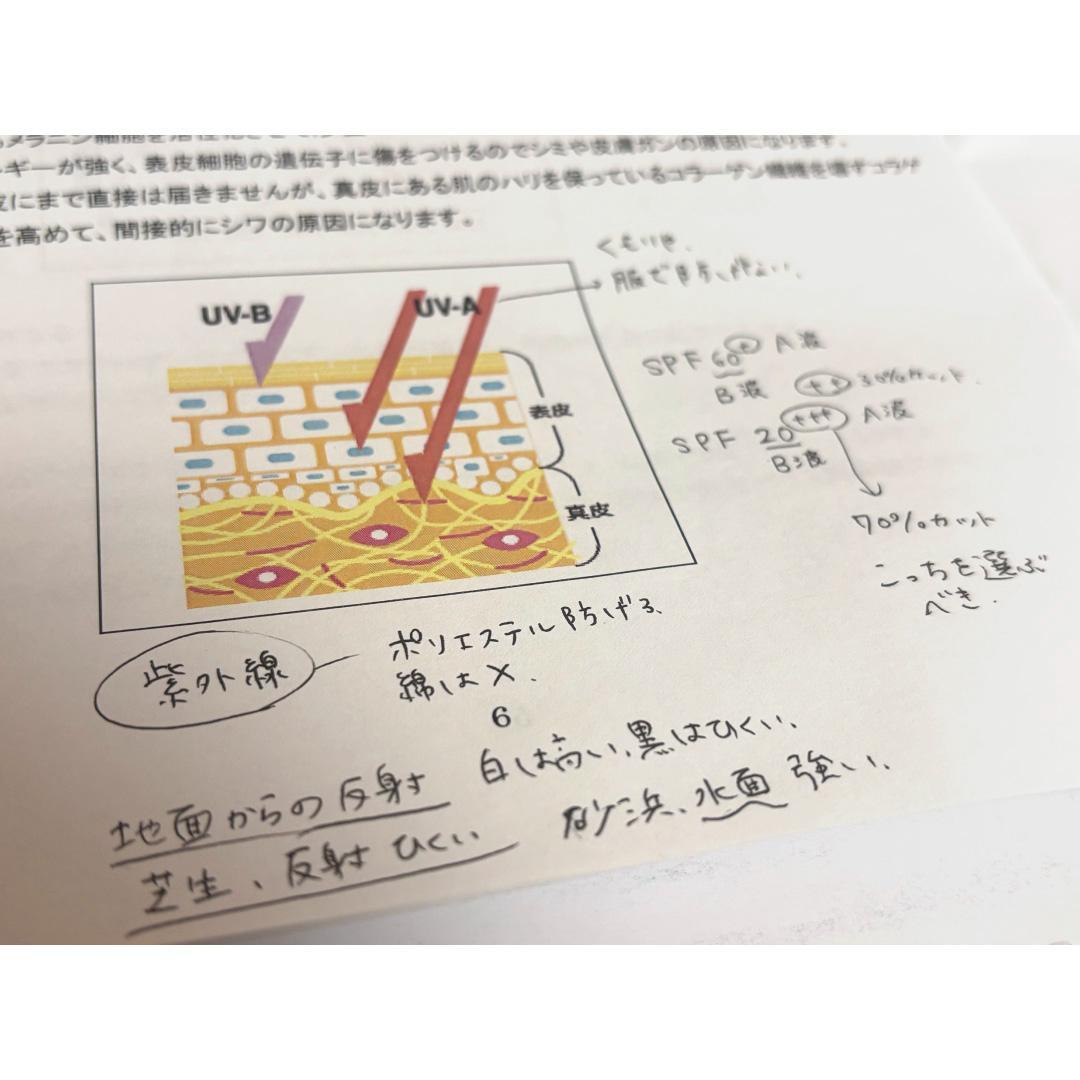 メラニン細胞を活性化させて
ギーが強く、表皮細胞の遺伝子に傷をつけるのでシミや皮膚ガンの原因になります。
皮にまで直接は届きませんが、真皮にある肌のハリを保っているコラーゲン繊維を壊すコラゲ
を高めて、間接的にシワの原因になります。
くもり
服で防げない。
UV-B
UV-A
表皮
真皮
SPF 60+ A波
B波 ++ 30%カット
SPF 20+++ A波
B波
70%カット
こっちを選ぶ
べき.
紫外線
ポリエステル防げる、
綿は×.
6
地面からの反射 白は高い、黒はひくい、
芝生、反射ひくい 砂浜、水面 強い、